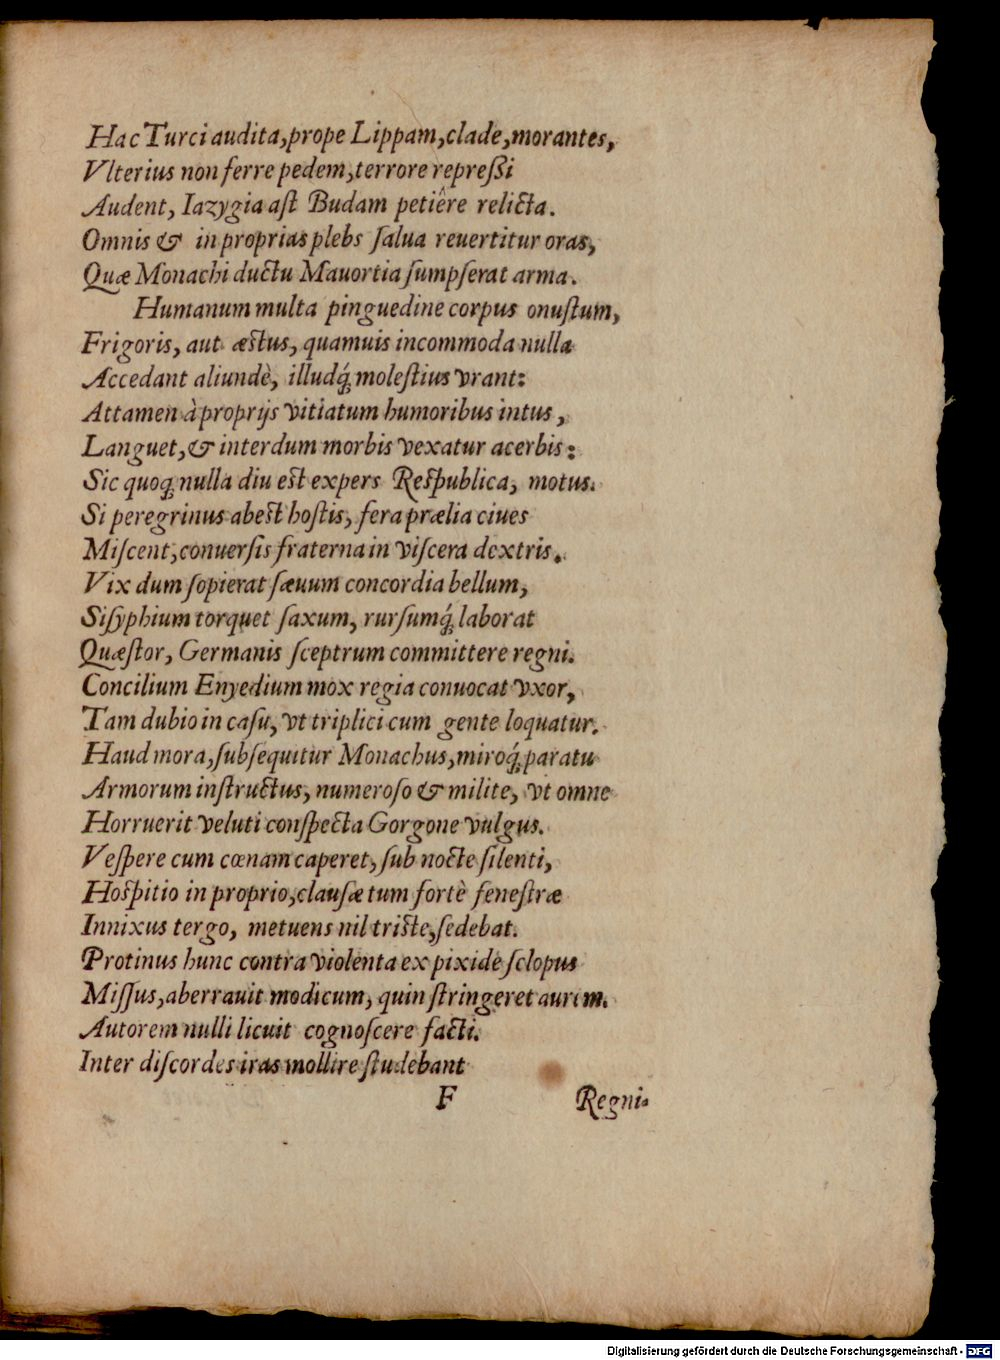 Hac Turci audita, prope Lippam, clade, morantes,
Vlterius non ferre pedem, terrore repreßi
Audent, Iazygia aſt Budam petiêre relicta.
Omnis & in proprias plebs ſalua reuertitur oras,
Quæ Monachi ductu Mauortia ſumpſerat arma.
Humanum multa pinguedine corpus onuſtum,
Frigoris, aut æſtus, quamuis incommoda nulla
Accedant aliundè, illudq́; moleſtius vrant:
Attamen à proprijs vitiatum humoribus intus,
Languet, & interdum morbis vexatur acerbis:
Sic quoq; nulla diu eſt expers Reſpublica, motus.
Si peregrinus abeſt hoſtis, fera prælia ciues
Miſcent, conuerſis fraterna in viſcera dextris.
Vix dum ſopierat ſæuum concordia bellum,
Siſyphium torquet ſaxum, rurſumq́; laborat
Quæſtor, Germanis ſceptrum committere regni.
Concilium Enyedium mox regia conuocat vxor,
Tam dubio in caſu, vt triplici cum gente loquatur.
Haud mora, ſubſequitur Monachus, miroq́; paratu
Armorum inſtructus, numeroſo & milite, vt omne
Horruerit veluti conſpecta Gorgone vulgus.
Veſpere cum cœnam caperet, ſub nocte ſilenti,
Hoſpitio in proprio, clauſæ tum fortè feneſtræ
Innixus tergo, metuens nil triſte, ſedebat.
Protinus hunc contra violenta ex pixide ſclopus
Miſſus, aberrauit modicum, quin ſtringeret aurem.
Autorem nulli licuit cognoſcere facti.
Inter diſcordes iras mollire ſtudebant
F Regni-
Digitalisierung gefördert durch die Deutsche Forschungsgemeinschaft - DFG